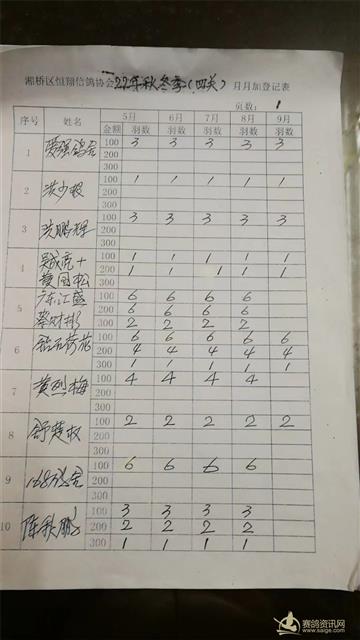 湘桥区恒翔信鸽协会22年秋冬季(四关)月月加登记表
页数: 1
序号 姓名 5月 6月 7月 8月 9月
金额 羽数 羽数 羽数 羽数 羽数
1 强鸽舍 100 3 3 3 3 3
200
300
2 洪少 100 1 1 1 1 1
200
300
3 洪鹏辉 100 3 3 3 3 3
200
300
4 吴成亮+ 100 1 1 1 1 1
国松 200 1 1 1 1 1
300
5 广东江盛 100 6 6 6 6
蔡财彬 200 6 6 6 6
300 2 2 2 2
6 钻石荷花 100 6 6 6 6 6
200 4 4 4 4 4
300 1 1 1 1 1
7 黄烈梅 100 4 4 4 4
200
300
8 舒楚 100 2 2 2 2 2
200
300
9 168鸽舍 100 6 6 6 6
200
300
10 陈秋鹏 100 3 3 3 3
200 2 2 2 2
300 1 1 1 1
赛鸽资讯网
www.saige.com